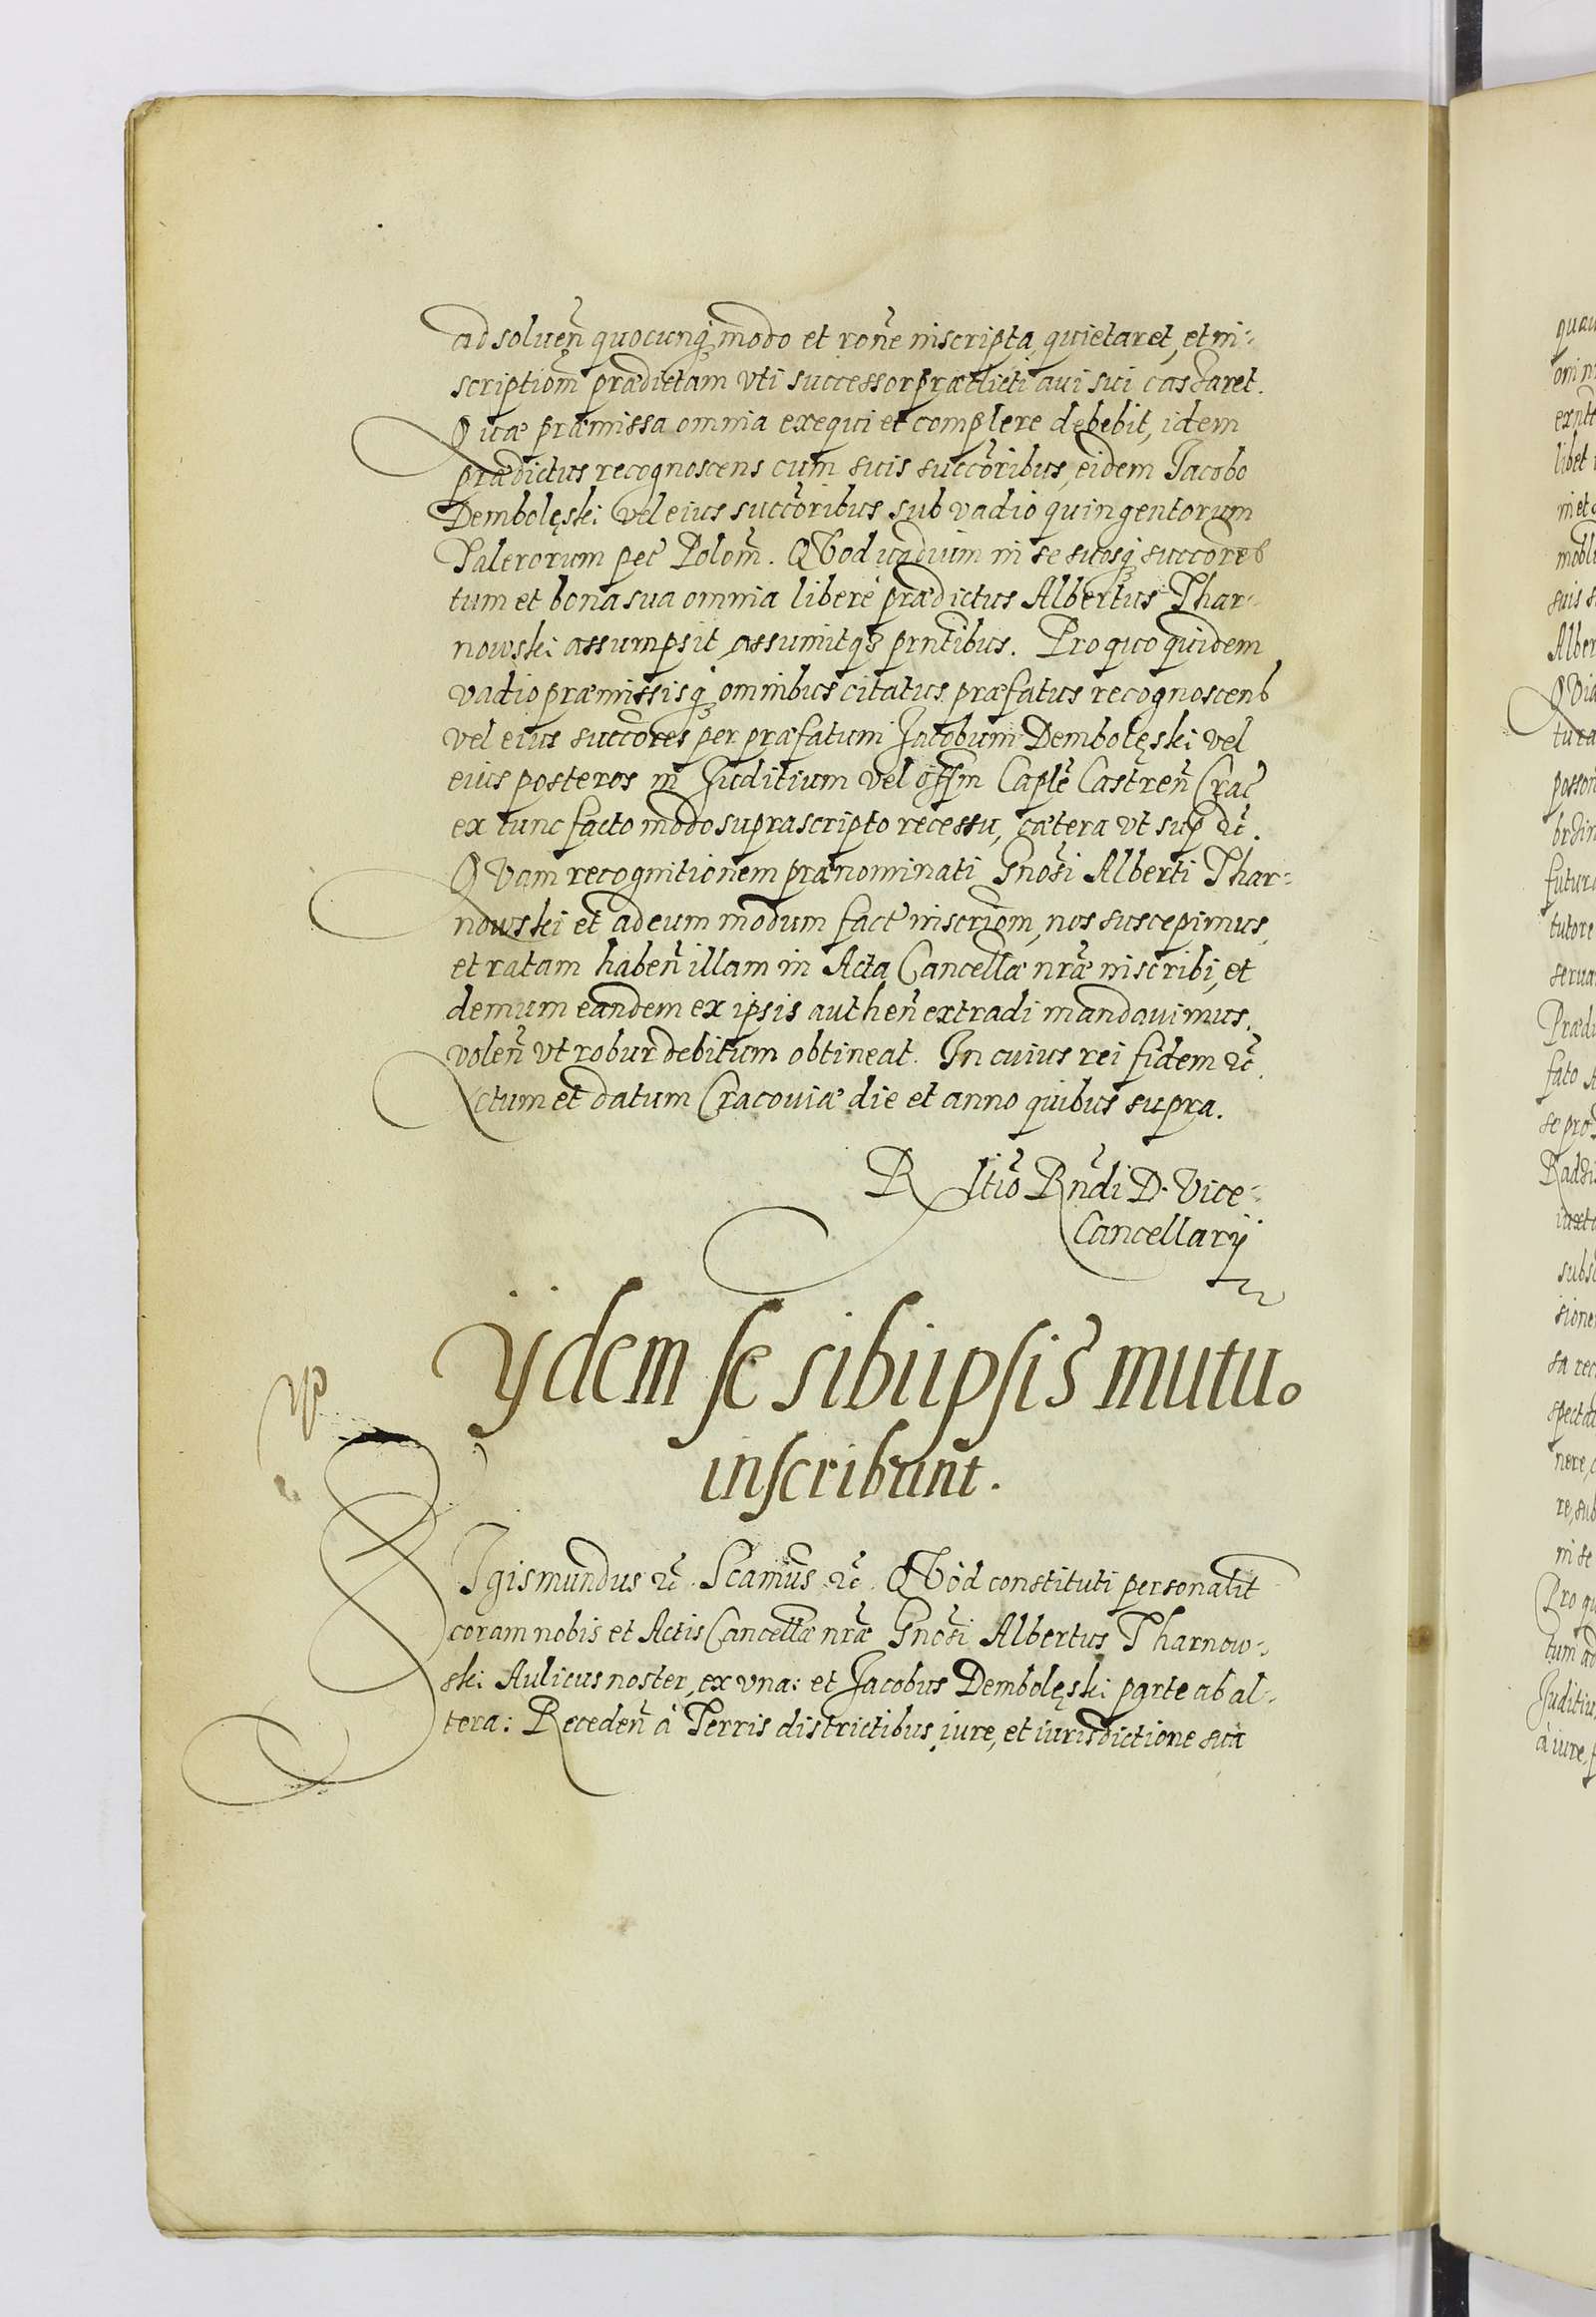 ad soluen̄ quocunq̷ modo et rōne inscripta, quietaret, et in-
scriptiom̄ prædictam vti successor prædicti aui sui castaret.
Quæ præmissa omnia exequi et complere debebit, idem
prædictus recognoscens cum suis succ̄oribus, eidem Jacobo
Dembolęski vel eius succ̄oribus sub vadio quingentorum
Talerorum pec̄ Polom̄. QVod vadium in se suosq̷ succ̄ores
tum et bona sua omnia liberè prædictus Albertus Thar-
nowski assumpsit, assumitq̷ prn̄tibus. Pro quo quidem
vadio præmissisq̷ omnibus citatus præfatus recognoscens
vel eius succ̄ores per præfatum Jacobum Dembolęski vel
eius posteros in Juditium vel offm̄ Caplē Castren̄ Crac̄
ex tunc facto modo suprascripto recessu, cætera vt sup̄ &c̄.
QVam recognitionem prænominati Gnōsi Alberti Thar-
nowski et ad eum modum fact̄ inscriōm, nos suscepimus,
et ratam haben̄ illam in Acta Cancellæ nr̄æ inscribi, et
demum eandem ex ipsis authen̄ extradi mandauimus.
volen̄ vt robur debitum obtineat. In cuius rei fidem &c̄.
Actum et datum Cracouiæ die et anno quibus supra.
Rltiō Rn̄di D. Vice-
Cancellarij
Ijdem se sibi ipsis mutuo
inscribunt.
SIgismundus &c̄. Scamūs &c̄. QVod constituti personalit̄
coram nobis et Actis Cancellæ nr̄æ Gnōsi Albertus Tharnow-
ski Aulicus noster, ex vna: et Jacobus Dembolęski parte ab al-
tera: Receden̄ à Terris districtibus, iure, et iurisdictione sua